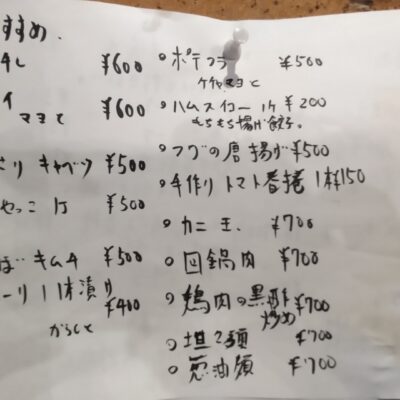 すすめ.
¥600
¥600
マヨと
キャベツ ¥500
やっこ 1ケ ¥500
キムチ ¥500
リ 1本漬け ¥400
からしと
ポテフラ ¥500
ケチャマヨと
ハムスイコー 1ケ ¥200
もちもち揚げ餃子。
フグの唐揚げ ¥500
手作りトマト春捲 1本¥150
カニ玉. ¥700
回鍋肉 ¥700
鶏肉の黒酢炒め ¥700
坦々麺 ¥700
葱油麺 ¥700